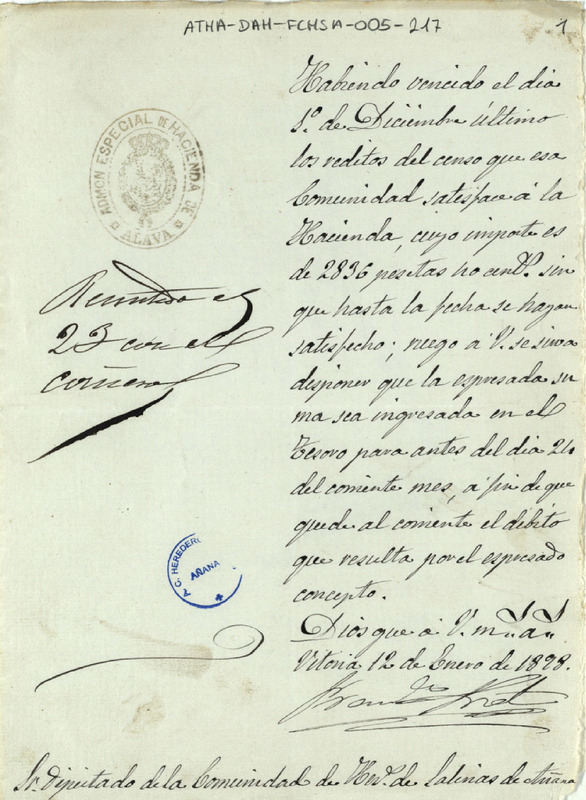 ATHA-DAH-FCHSA-005-217
1
ADMON ESPECIAL DE HACIENDA DE
ALAVA
Habiendo vencido el dia
1º. de Diciembre último
los reditos del censo que esa
Comunidad satisface á la
Hacienda, cuyo importe es
de 2836 pesetas 40 centˢ. sin
que hasta la fecha se hayan
satisfecho; ruego á V. se sirva
disponer que la espresada su
ma sea ingresada en el
Tesoro para antes del dia 24
del corriente mes, á fin de que
quede al corriente el débito
que resulta por el espresado
concepto.
Dios gue á V. mˢ. aˢ.
Vitoria 12 de Enero de 1898.
Remitido el
23 con el
C. HEREDER
AÑANA
Sr. Diputado de la Comunidad de Herˢ. de Salinas de Añana